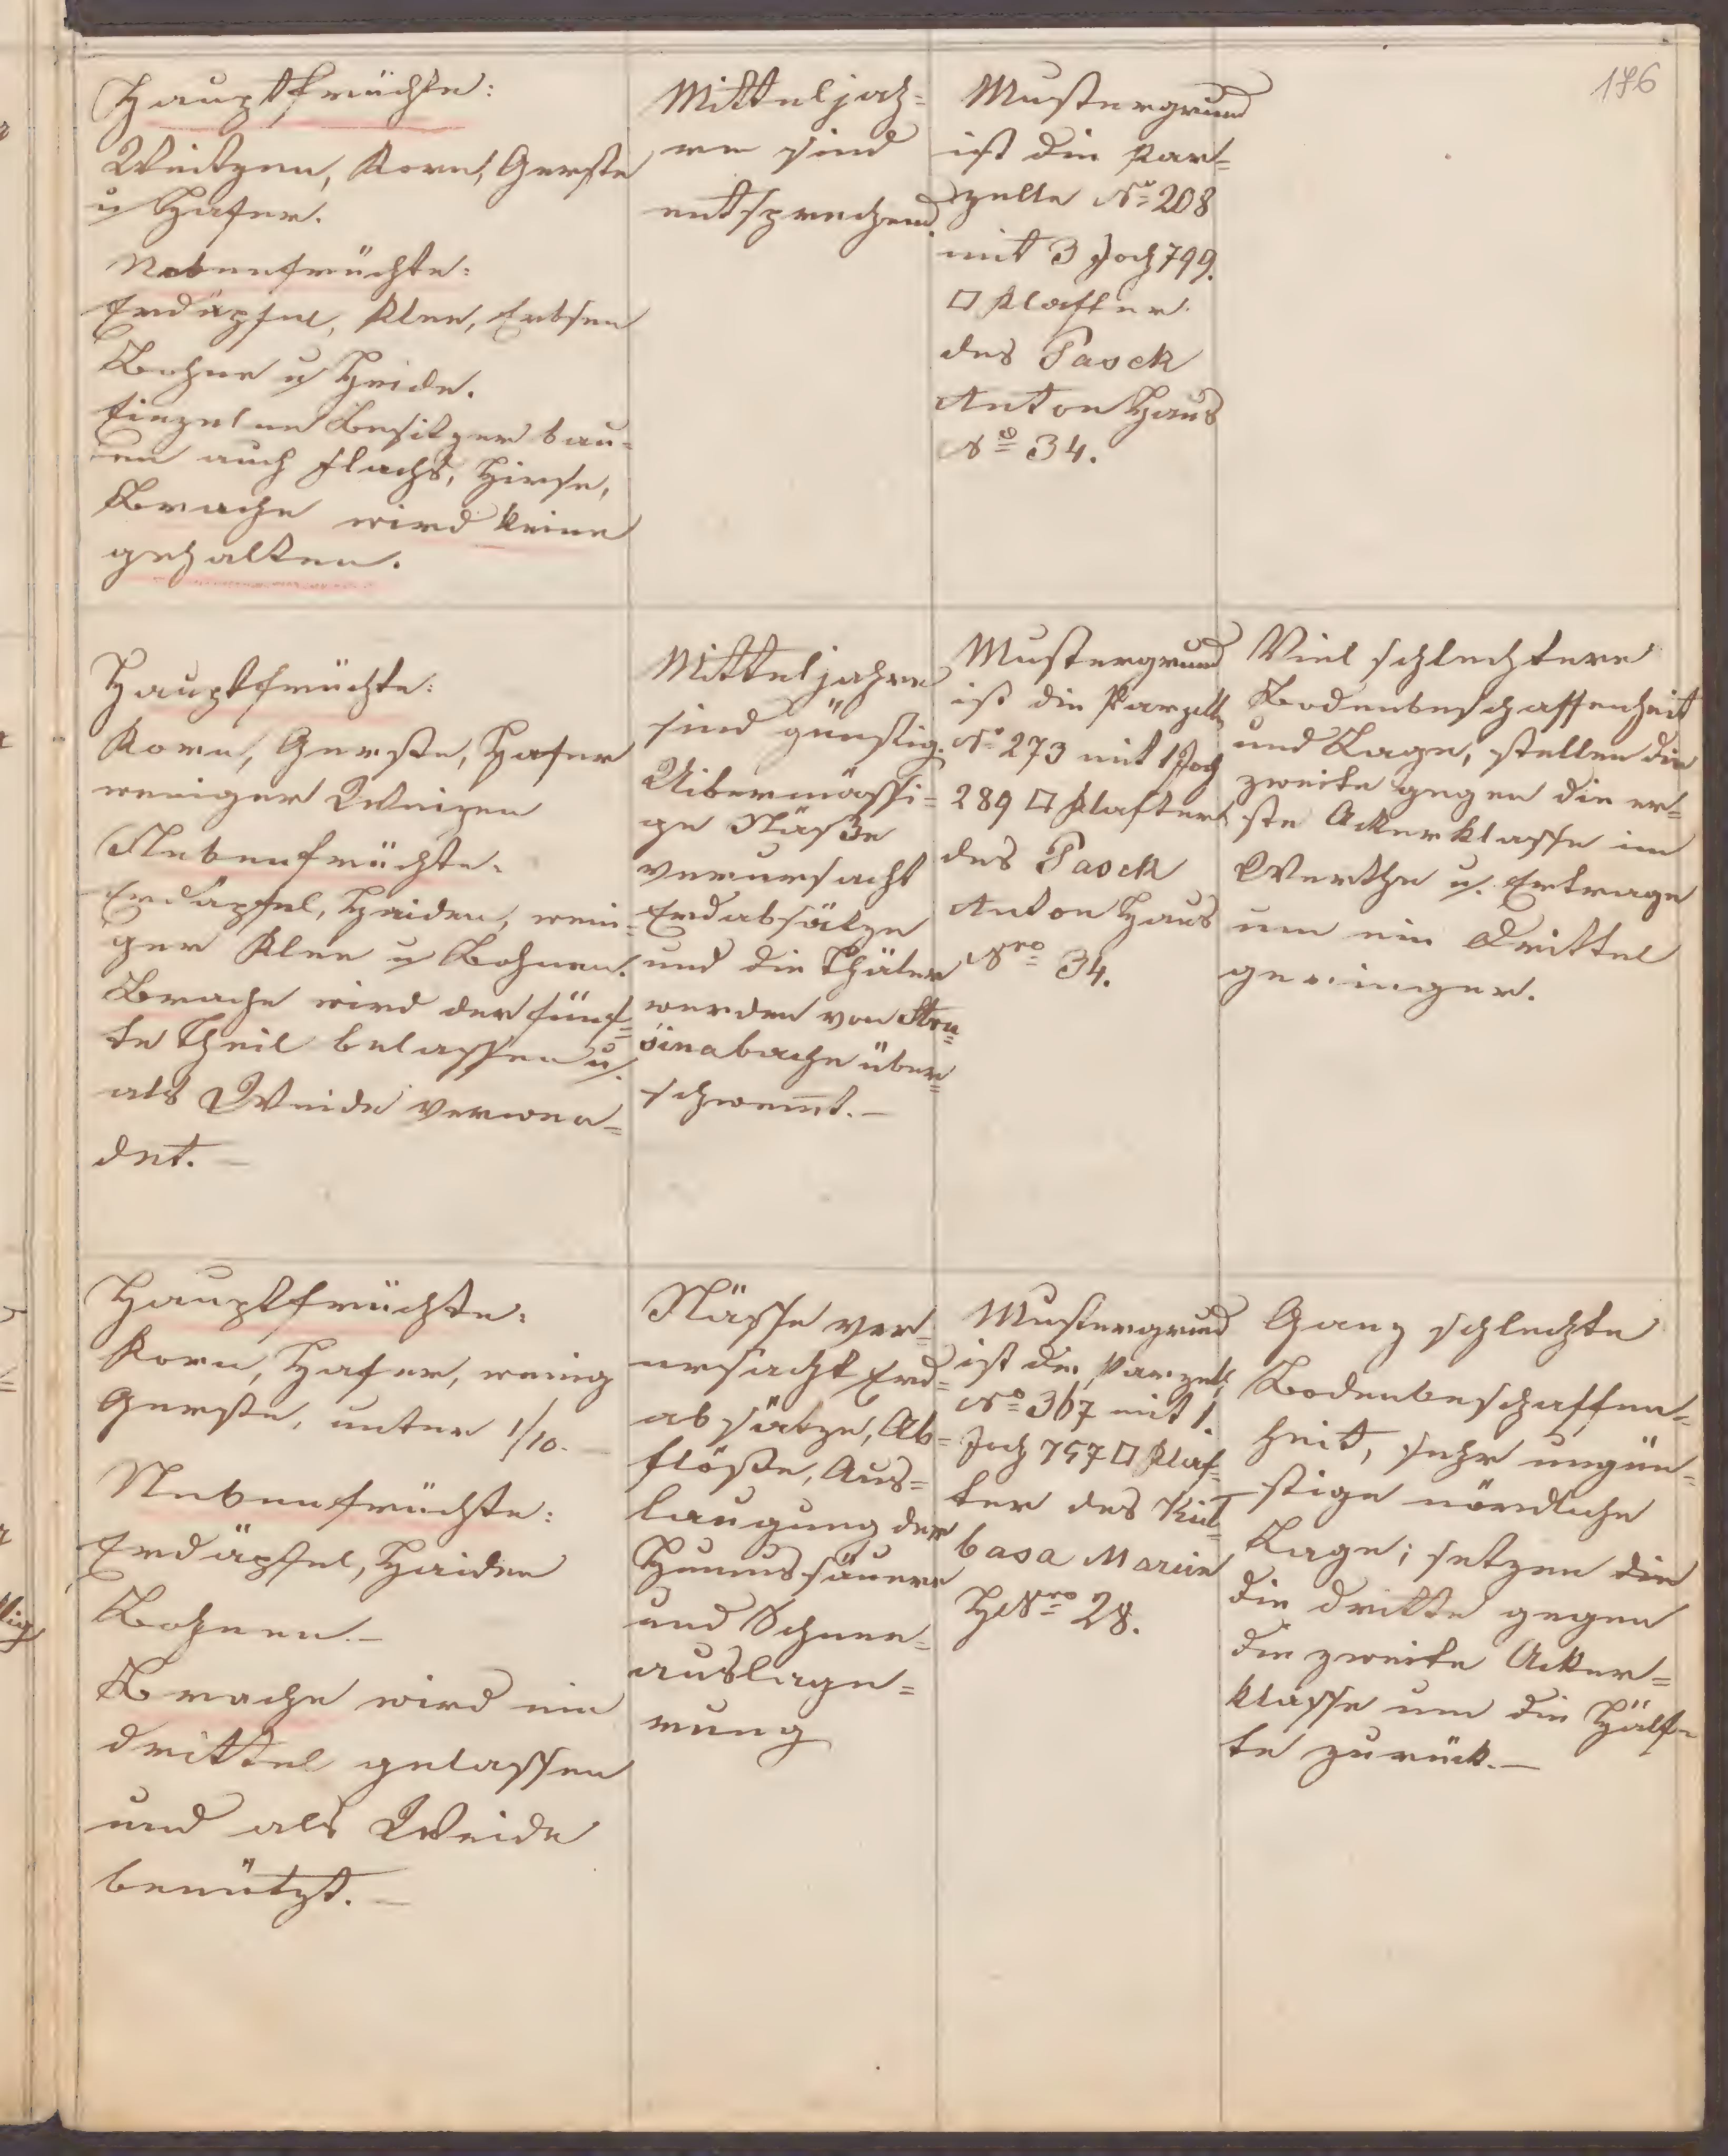 176
Hauptfrüchte:
Weitzen, Korn, Gerste
u Hafer.
Nebenfrüchte:
Erdäpfel, Klee, Erbsen
Bohne u Heide.
Einzelne Besitzer bau=
en auch Flachs, Hirse,
Brache wird keine
gehalten.
Mitteljah=
re sind
entsprechend.
Mustergrund
ist die Par=
zelle No 208
mit 3 Joch 799.
□ Klafter
des Pasek
Anton Haus
No 34.
Hauptfrüchte:
Korn, Gerste, Hafer
weniger Weizen
Nebenfrüchte.
Erdäpfel, Haiden, weni=
ger Klee u Bohnen.
Brache wird der fünf=
te Theil belassen u.
als Weide verwen=
det. –
Mitteljahre
sind günstig.
Uibermässi=
ge Näße
verursacht
Erdabsätze
und die Thäler
werden von
bache über=
schwem̄t. –
Mustergrund
ist die Parzelle
No 273 mit 1 Joch
289 □ Klafter
des Pasek
Anton Haus
Nro 34.
Viel schlechtere
Bodenbeschaffenheit
und Lage, stellen die
zweite gegen die er=
ste Ackerklasse im
Werthe u. Ertrage
um ein Drittel
geringer.
Hauptfrüchte.
Korn, Hafer, wenig
Gerste, unter 1/10. –
Nebenfrüchte:
Erdäpfel, Haiden
Bohnen. –
Brache wird ein
drittel gelassen
und als Weide
benützt. –
Nässe ver=
ursacht Erd=
absätze, Ab=
flöße, Aus=
laugung der
Humussäuere
und Schnee=
auslage=
rung
Mustergrund
ist die Parzell
No 367 mit 1.
Joch 757 □ Klaf=
ter des
Marie
H Nro 28.
Ganz schlechte
Bodenbeschaffen=
heit, sehr ungün=
stige nördliche
Lage; setzen die
die dritte gegen
die zweite Acker=
klasse um die Hälf=
te zurück. –